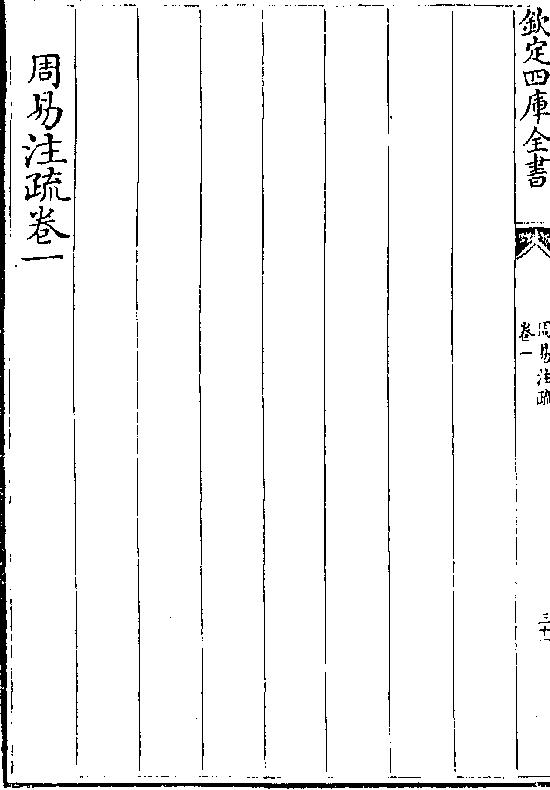 欽定四庫全書
周易注疏
卷一
三十一
周易注疏卷一